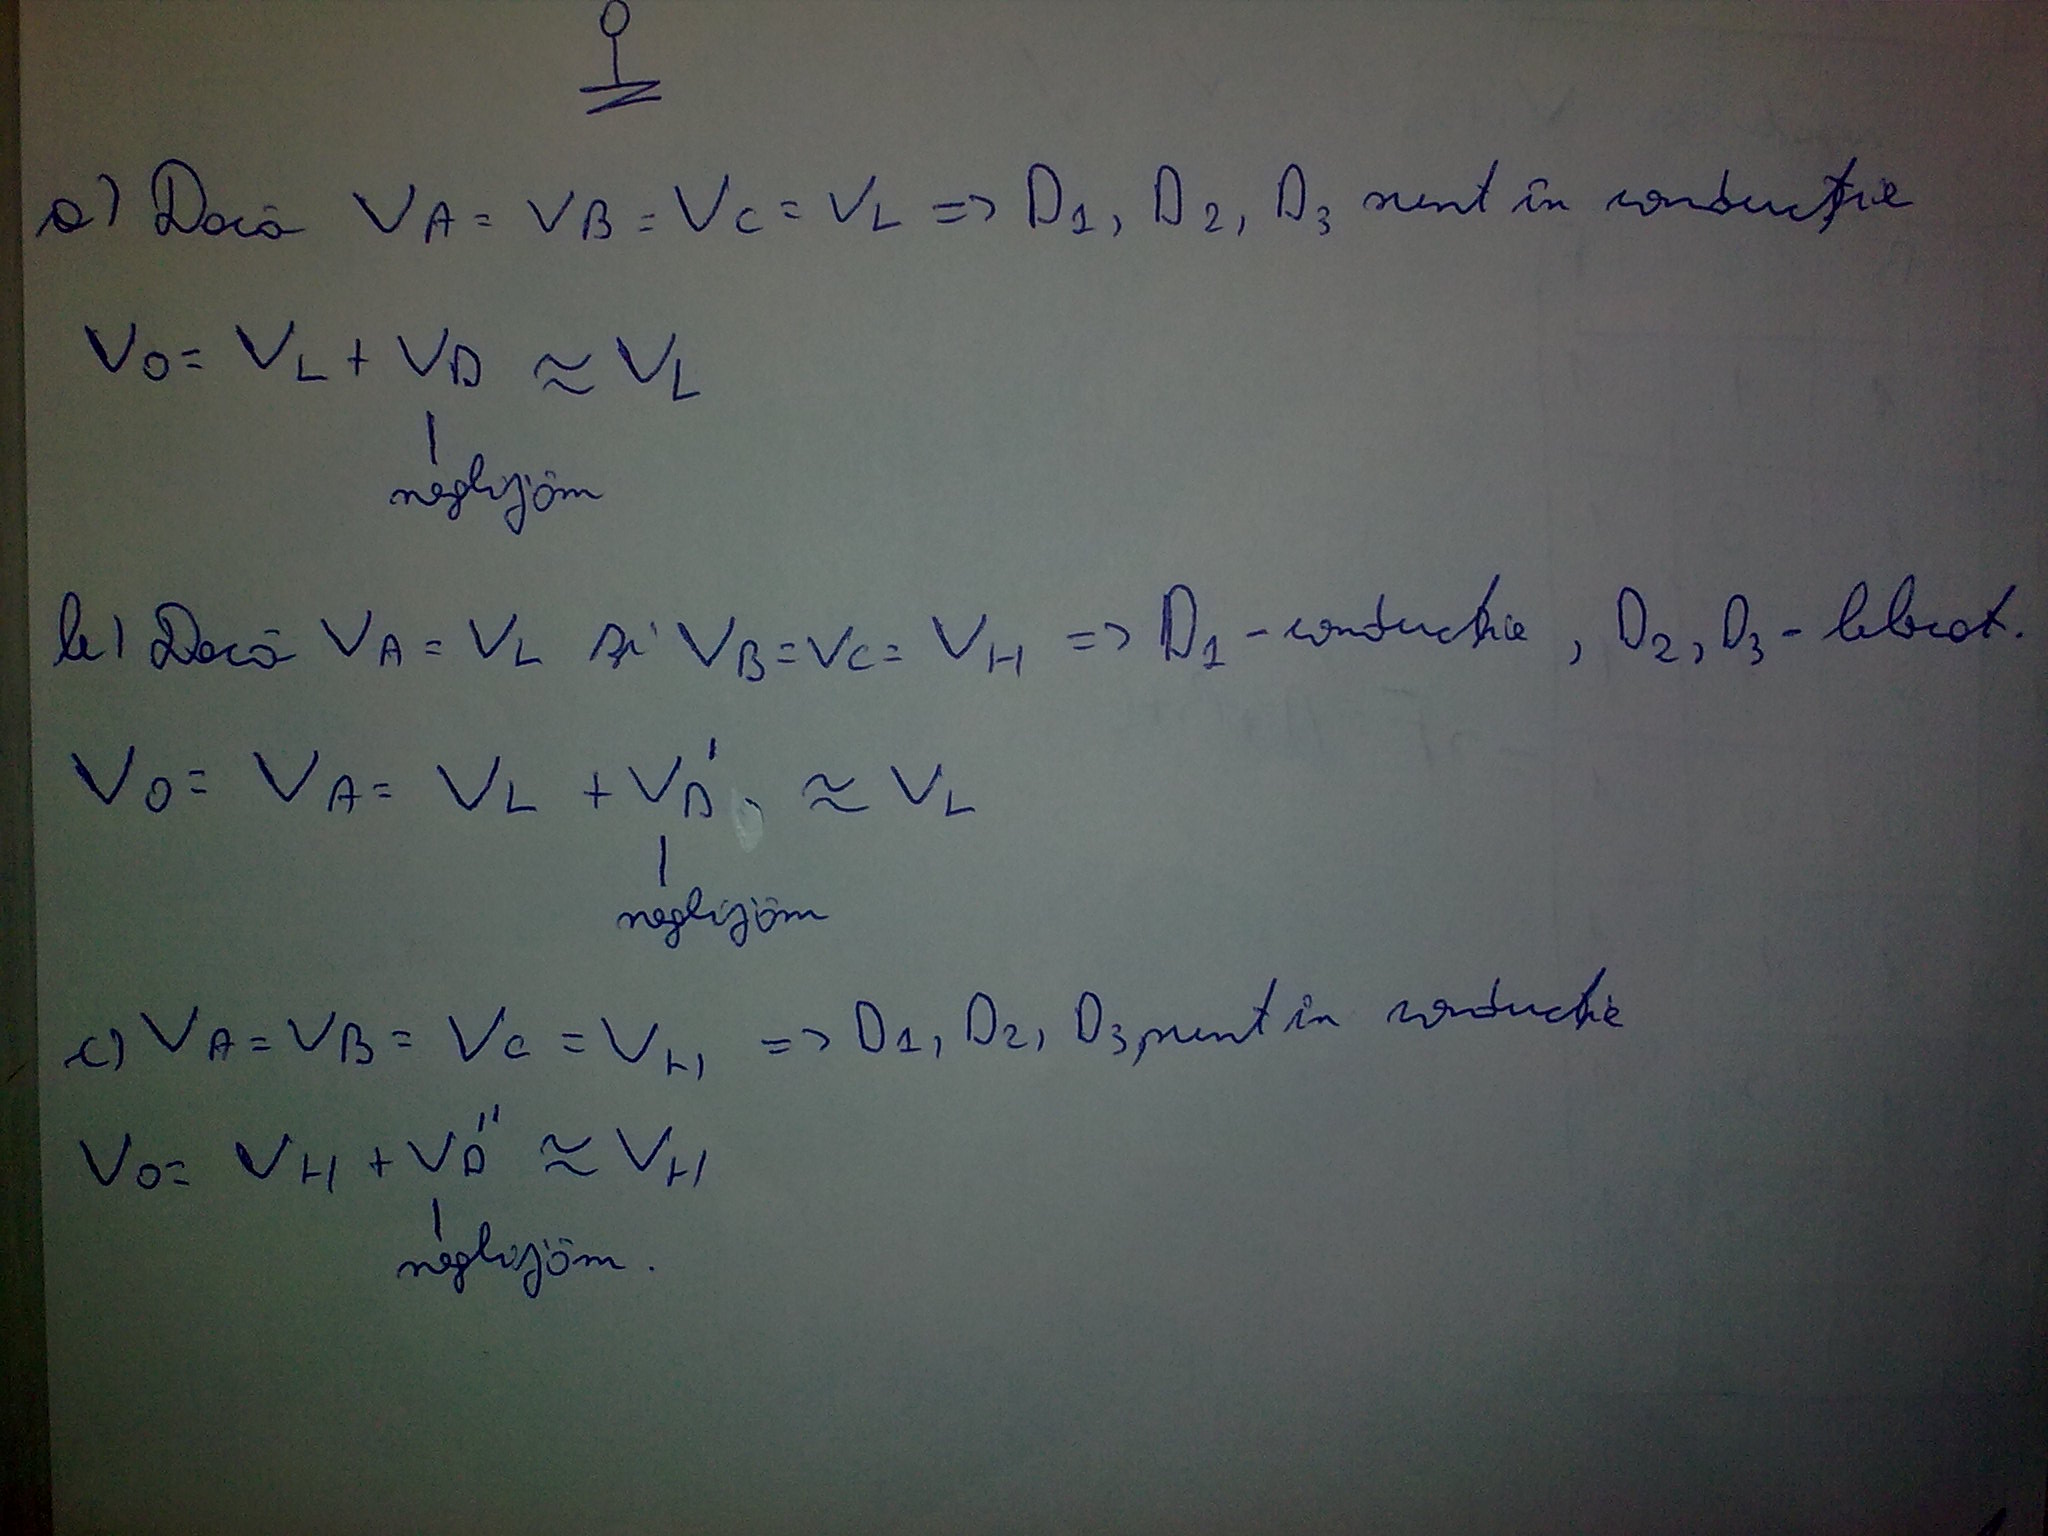 a) Dacă VA = VB = VC = VL => D1, D2, D3 sunt în conducţie
VO = VL + VD ≈ VL
neglijăm
b) Dacă VA = VL şi VB = VC = VH => D1 - conducţie, D2, D3 - blocat.
VO = VA = VL + VD' ≈ VL
neglijăm
c) VA = VB = VC = VH => D1, D2, D3, sunt în conducţie
VO = VH + VD'' ≈ VH
neglijăm.